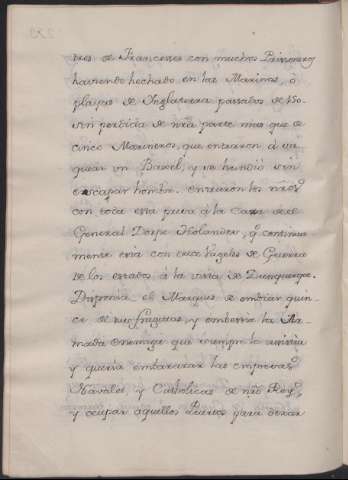 dres de Franceses con muchos Prisioneros
haviendo hechado en las Marinas, ò
playas de Inglaterra pasados de 150.
sin perdida de nr̃a parte mas que de
cinco Marineros, que entraron á sa
quear un Baxel, y se hundió sin
escapar hombre. entraron los nr̃os
con toda esta presa á la Cara del
General Dorpe Holandes, q.e continua
mente está con once bageles de Guerra
de los estados á la vista de Dunquerque.
Disponia el Marques de embiar quin-
ce de sus fragatas, y embestir la Ar-
mada enemiga que siempre la
y queria embarazar las empresas
Navales, y Catholicas de nr̃o Rey,
y ocupar aquellos Puertos para